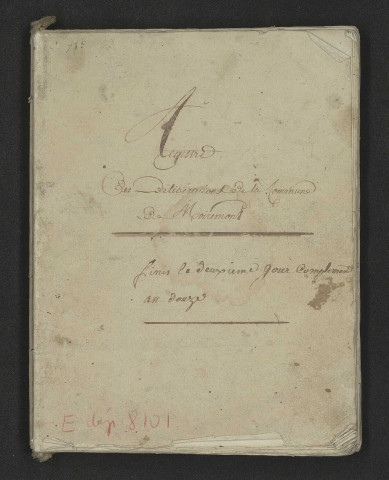 Registre
Des Deliberations de la Commune
De Miremont
Finis le deuxieme jour Complement
an douze
E dep 8 101